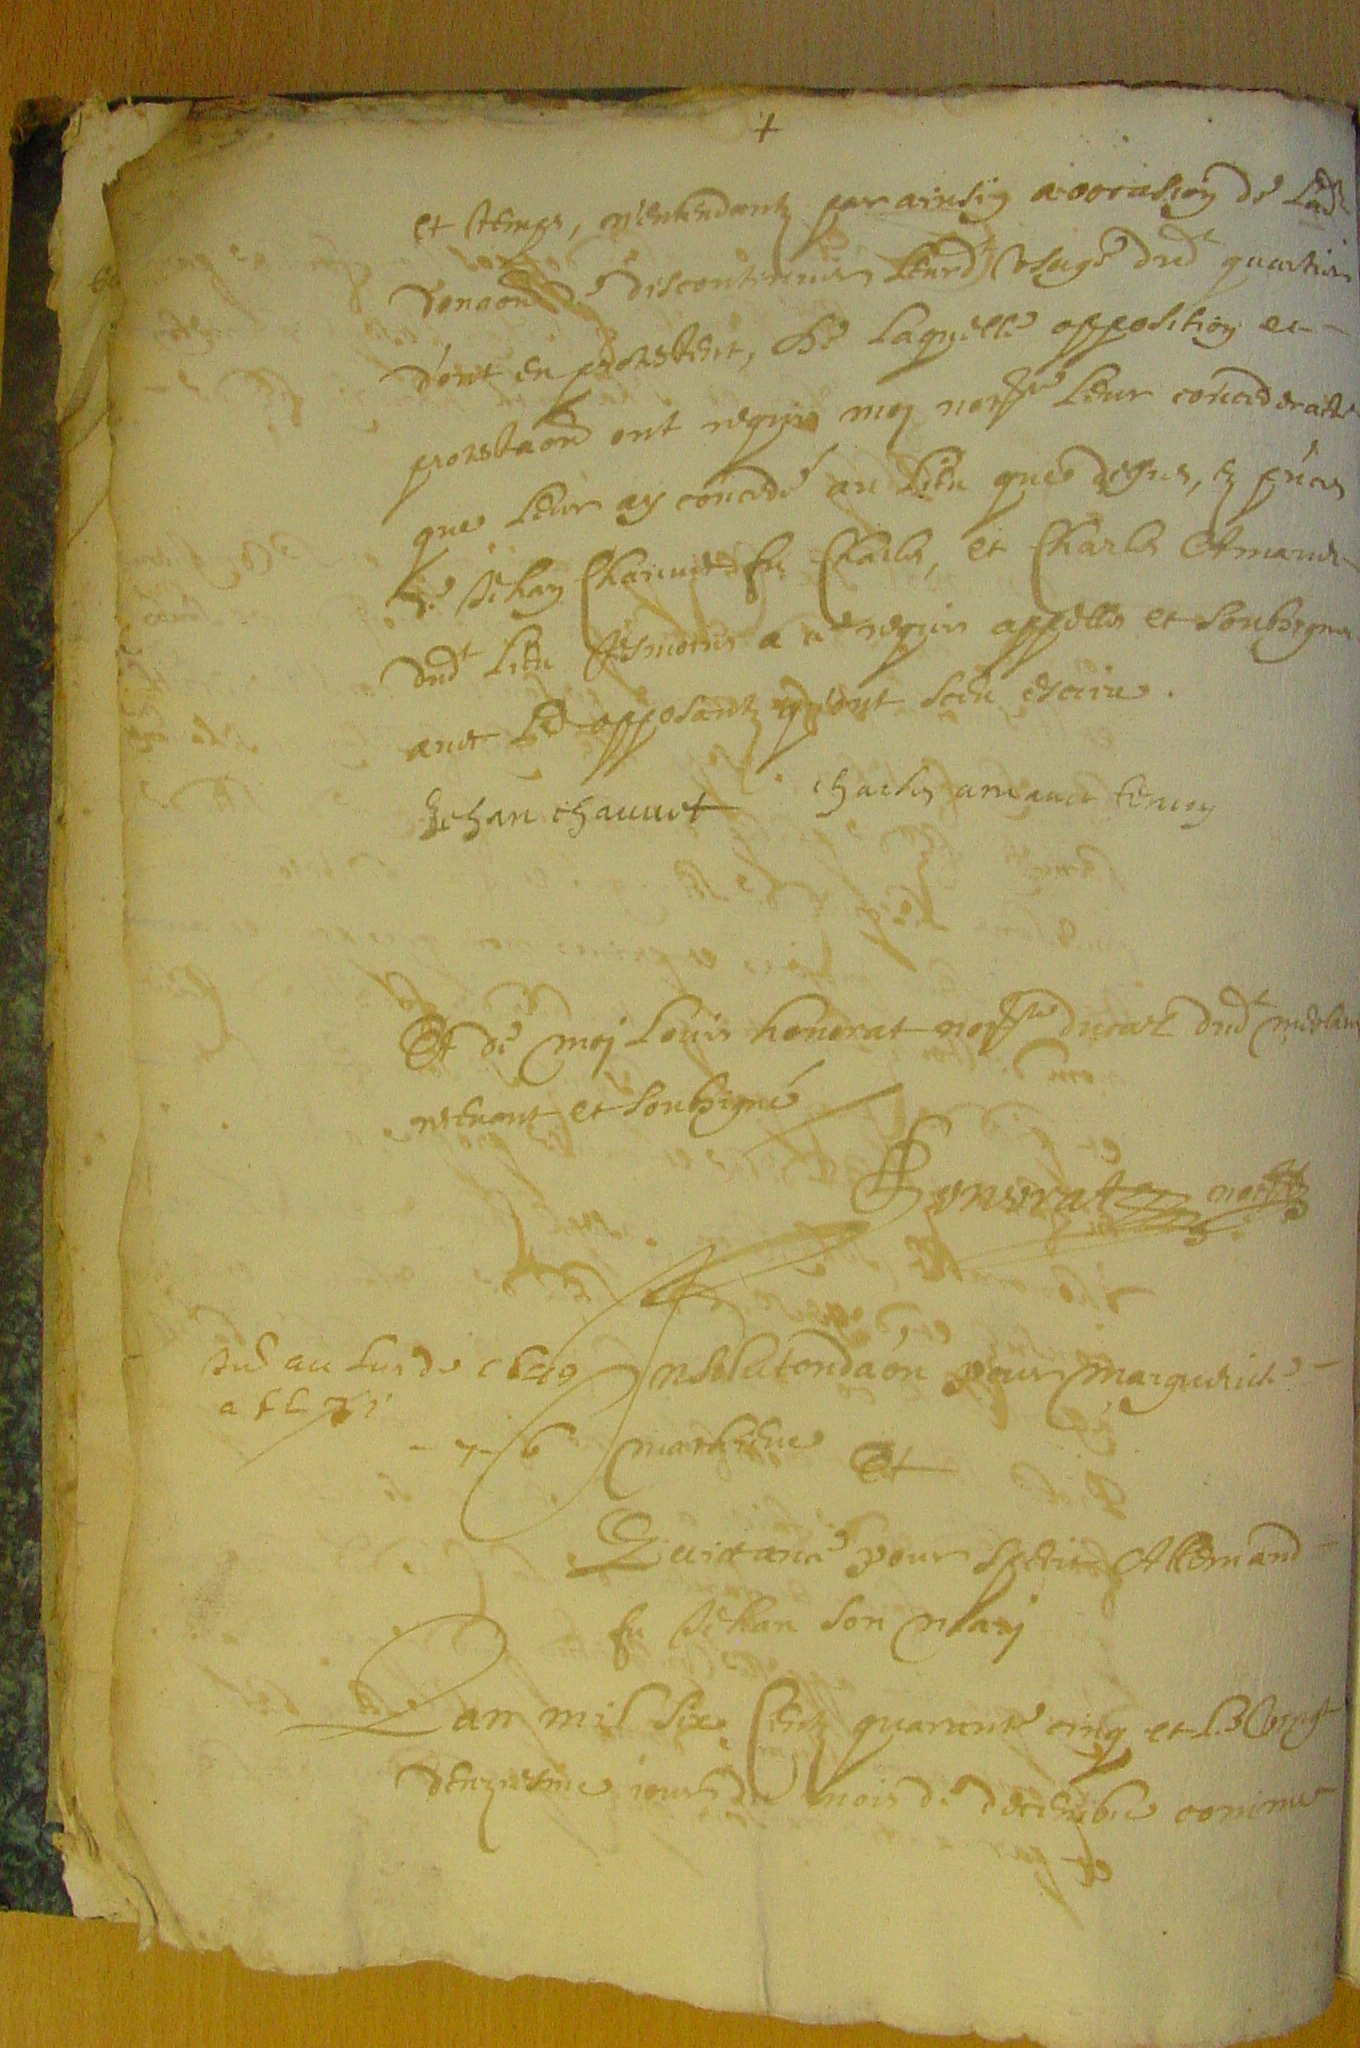 +
et temps, n'entendantz par ainsin a occasion de lad
donaon discontinuer leurd usage dud quartier
dont en protestent, de laquelle opposition et
protestaon ont requis moy notre leur conceder acte
que leur ay concedé au lieu que dessus, ez pñces
de Jehan Chauvet fu Charles, et Charles Amaud
dud lieu tesmoins a ce requis appelles et soubsignes
avec led opposantz qu'ont sceu escrire.
Jehan chauvet charles amaud temoy
Et de moy Louis honorat notre ducal dud
recevant et soubsigné
Honorat notre
au de 1649
Insolutondaon pour Marguerite
Matthieue Et
Quittance pour Allemand
fu Jehan son mary
L'an mil six centz quarante cinq et le vingt
deuxiesme jour du mois de decembre comme